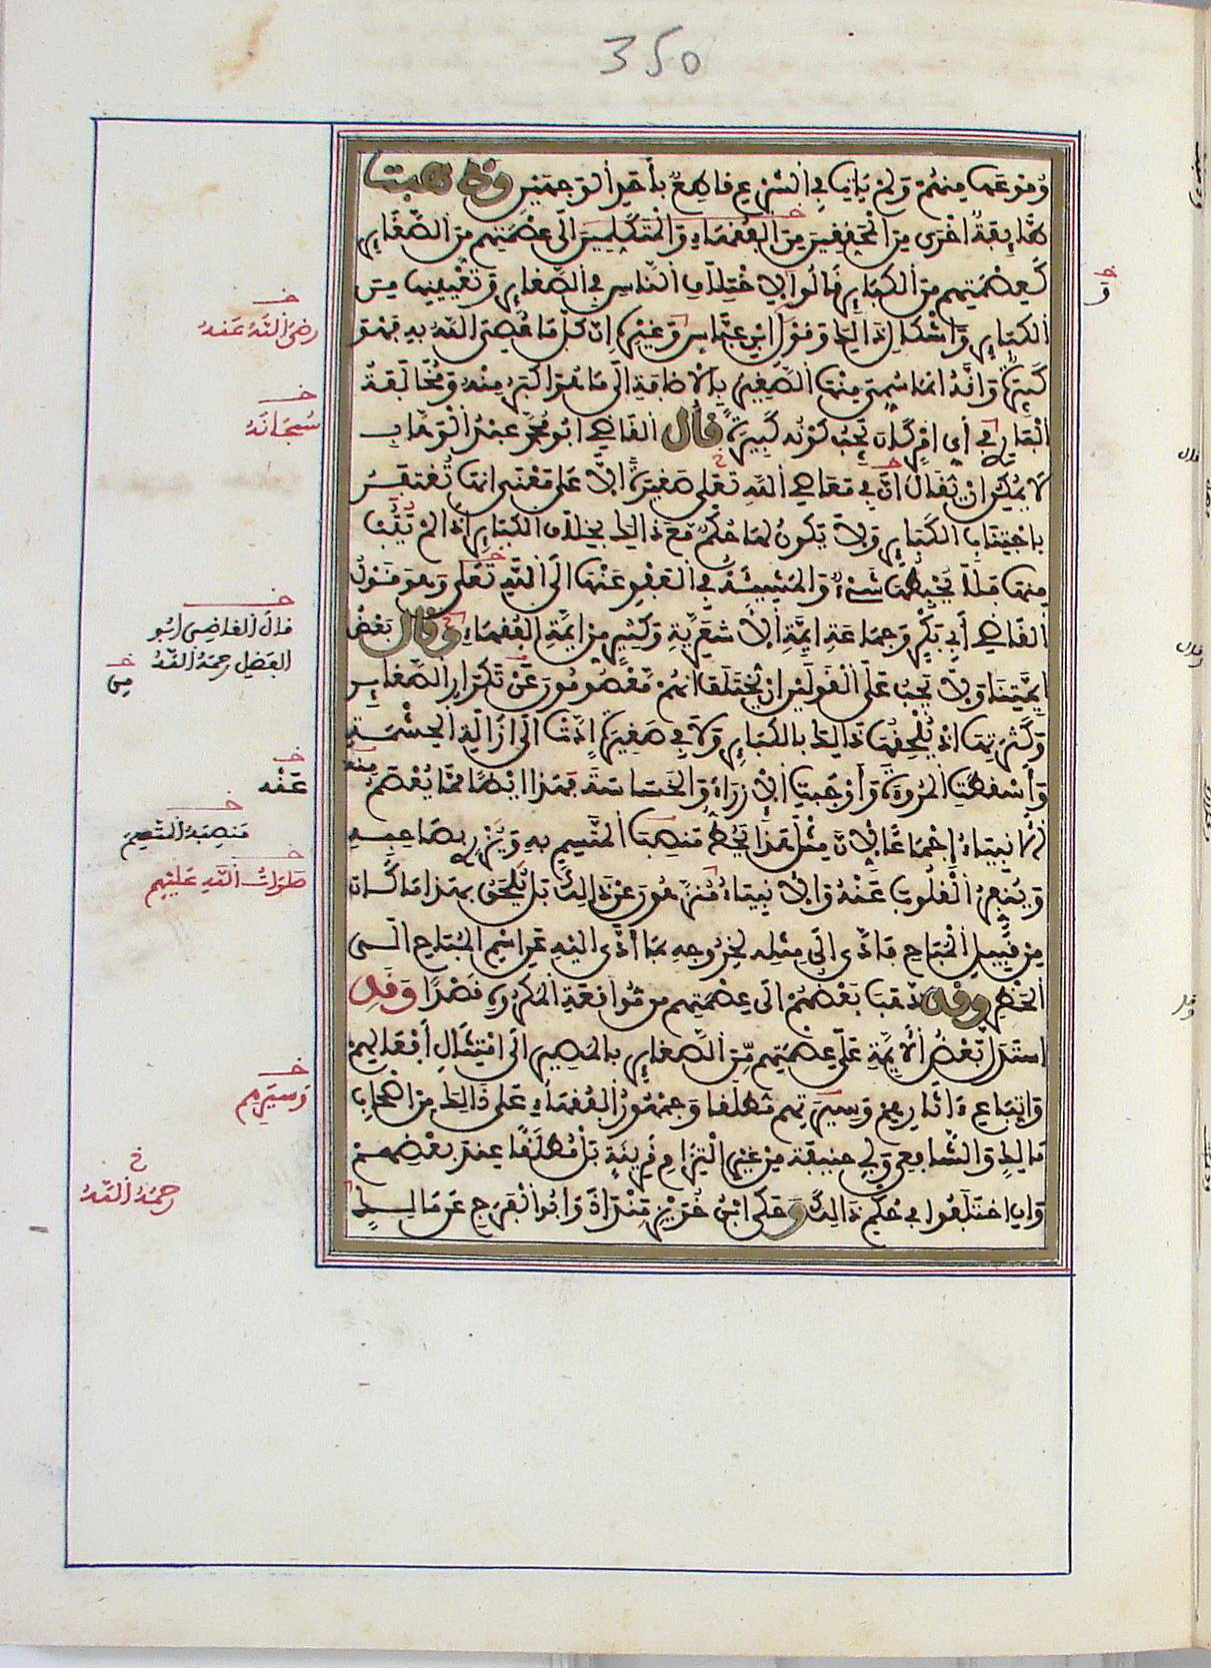 350
وُفوعَها منهُمْ وَلمْ يَاتِ في الشرْعِ فاطِعٌ بأَحَدِ الْوَجهَيْنِ وذهبت
طَّايِفةٌ اخْرى مِنَ الْمُحَفِفِينَ مِنَ الْبُفَهاءِ وَالْمُتَكَلِّمِينَ الَى عِصْمَتِهِم مِنَ الصَّغَايِر
كَعِصْمَتِهِم مِنَ الْكَبَايِرِ فَالُوا لِاخْتِلَافِ النَّاسِ في الصَّغَايِرِ وَتَعْيِينِها مِنَ
الْكبَايِرِ وَاشْكَالِ ذَالِكَ وَفَوْلِ ابْنِ عَبَّاسٍ وَغَيْرِهِ انَّ كُلَّ مَا عُصِيَ اللَّهُ بِهِ فَهُوَ
كَبِيرَةٌ وَانَّهُ انمَا سُمِّيَ مِنْهَا الصَّغِيرُ بِالْاضَافَةِ الَى مَا هُوَ اكْبَرُ مِنْهُ وَمُخَالَفَةُ
الْبَارِي في أَيِّ امْرٍ كَانَ يَجِبُ كَوْنُهُ كَبِيرَةً فال الْفَاضِي ابُو مُحَمَّدٍ عَبْدُ الْوَهَّابِ
لَا يُمْكِنُ انْ يُفَالَ انَّ في مَعَاصِي اللَّهِ تَعَلَى صَغِيرَةً الَّا عَلَى مَعْنَى انهَا تُغْتَفَرُ
بِاجْتِنَابِ الْكَبَايِرِ وَلَا يَكُونُ لَهَا حُكْمٌ مَعَ ذَالِكَ بِخِلَافِ الْكَبَايِرِ اذَا لَمْ يُتَبْ
مِنْهَا فَلَا يُحْبِطُهَا شَيْءٌ وَالْمَشِيئَةُ في الْعَفْوِ عَنْهَا الَى اللَّهِ تَعَلَى وَهوَ فَوْلُ
الْفَاضِي أَبِي بَكْرٍ وَجَمَاعَةِ ايِمَّةِ الْأَشْعَرِيَّةِ وَكَثِيرٍ مِنْ ايِمَّةِ الْبُفَهَاءِ وفال بَعْضُ
ايِمَّتِنَا وَلَا يَجِبُ عَلَى الْفَوْلَيْنِ انْ يُخْتَلَفَ انهُمْ مَعْصُومُونَ عَنْ تَكْرَارِ الصَّغَايِرِ
وَكَثْرَتِهَا اذْ يُلْحِفُهَا ذَالِكَ بِالْكَبَايِرِ وَلَا في صَغِيرَةٍ ادَّتْ الَى ازَالَةِ الْحِشْمَةِ
وَأَسْفَطَتِ الْمُرُوءَةَ وَأَوْجَبَتِ الْازْرَاءَ وَالْخَسَاسَةَ فَهَذَا ايْضًا مِمَّا يُعْصَمُ مِنْهُ
الْأَنْبِيَاءُ إِجْمَاعًا لِأَنَّ مِثْلَ هَذَا يَحُطُّ مَنْصِبَ الْمُتَّسِمِ بِهِ وَيُزْرِي بِصَاحِبِهِ
وَيُنَفِّرُ الْفُلُوبَ عَنْهُ وَالْأَنْبِيَاءُ مُنَزَّهُونَ عَنْ ذَالِكَ بَلْ يُلْحَقُ بِهَذَا مَا كَانَ
مِنْ فَبِيلِ الْمُبَاحِ فَأَدَّى الَى مِثْلِهِ لِخُرُوجِهِ بِمَا أَدَّى الَيْهِ عَنِ اسْمِ الْمُبَاحِ الَى
الْحَظْرِ وفد ذَهَبَ بَعْضُهُمْ الَى عِصْمَتِهِم مِن مُوَافَعَةِ الْمَكْرُوهِ فَصْدًا وَفَدِ
اسْتَدَلَّ بَعْضُ الْأَيِمَّةِ عَلَى عِصْمَتِهِم مِنَ الصَّغَايِرِ بِالْمَصِيرِ الَى امْتِثَالِ أَفْعَالِهِمْ
وَاتِّبَاعِ ءَاثَارِهِمْ وَسِيَرِهِم مُطْلَفًا وَجُمْهُورُ الْبُفَهَاءِ عَلَى ذَالِكَ مِنْ اصْحَابِ
مَالِكٍ وَالشَّافِعِي وَأَبِي حَنِيفَةَ مِنْ غَيْرِ الْتِزَامِ فَرِينَةٍ بَلْ مُطْلَفًا عِنْدَ بَعْضِهِمْ
وَانِ اخْتَلَفُوا في حُكْمِ ذَالِكَ وَحَكَى ابْنُ خُوَيْزِ مَنْدَاذَ وَابُو الْفَرَجِ عَن مَالِكٍ
خ
رضيَ اللَّهُ عَنهُ
خ
سُبحَانَهُ
خ
فالَ الفاضِي ابُو
الفضل رحمَهُ اللَّهُ
خ
عَنْه
خ
مَنصِبَهُ
خ
صَلَوَاتُ اللَّهِ عَلَيْهِم
خ
وَسِيَرِهِم
خ
رحمَهُ اللَّهُ